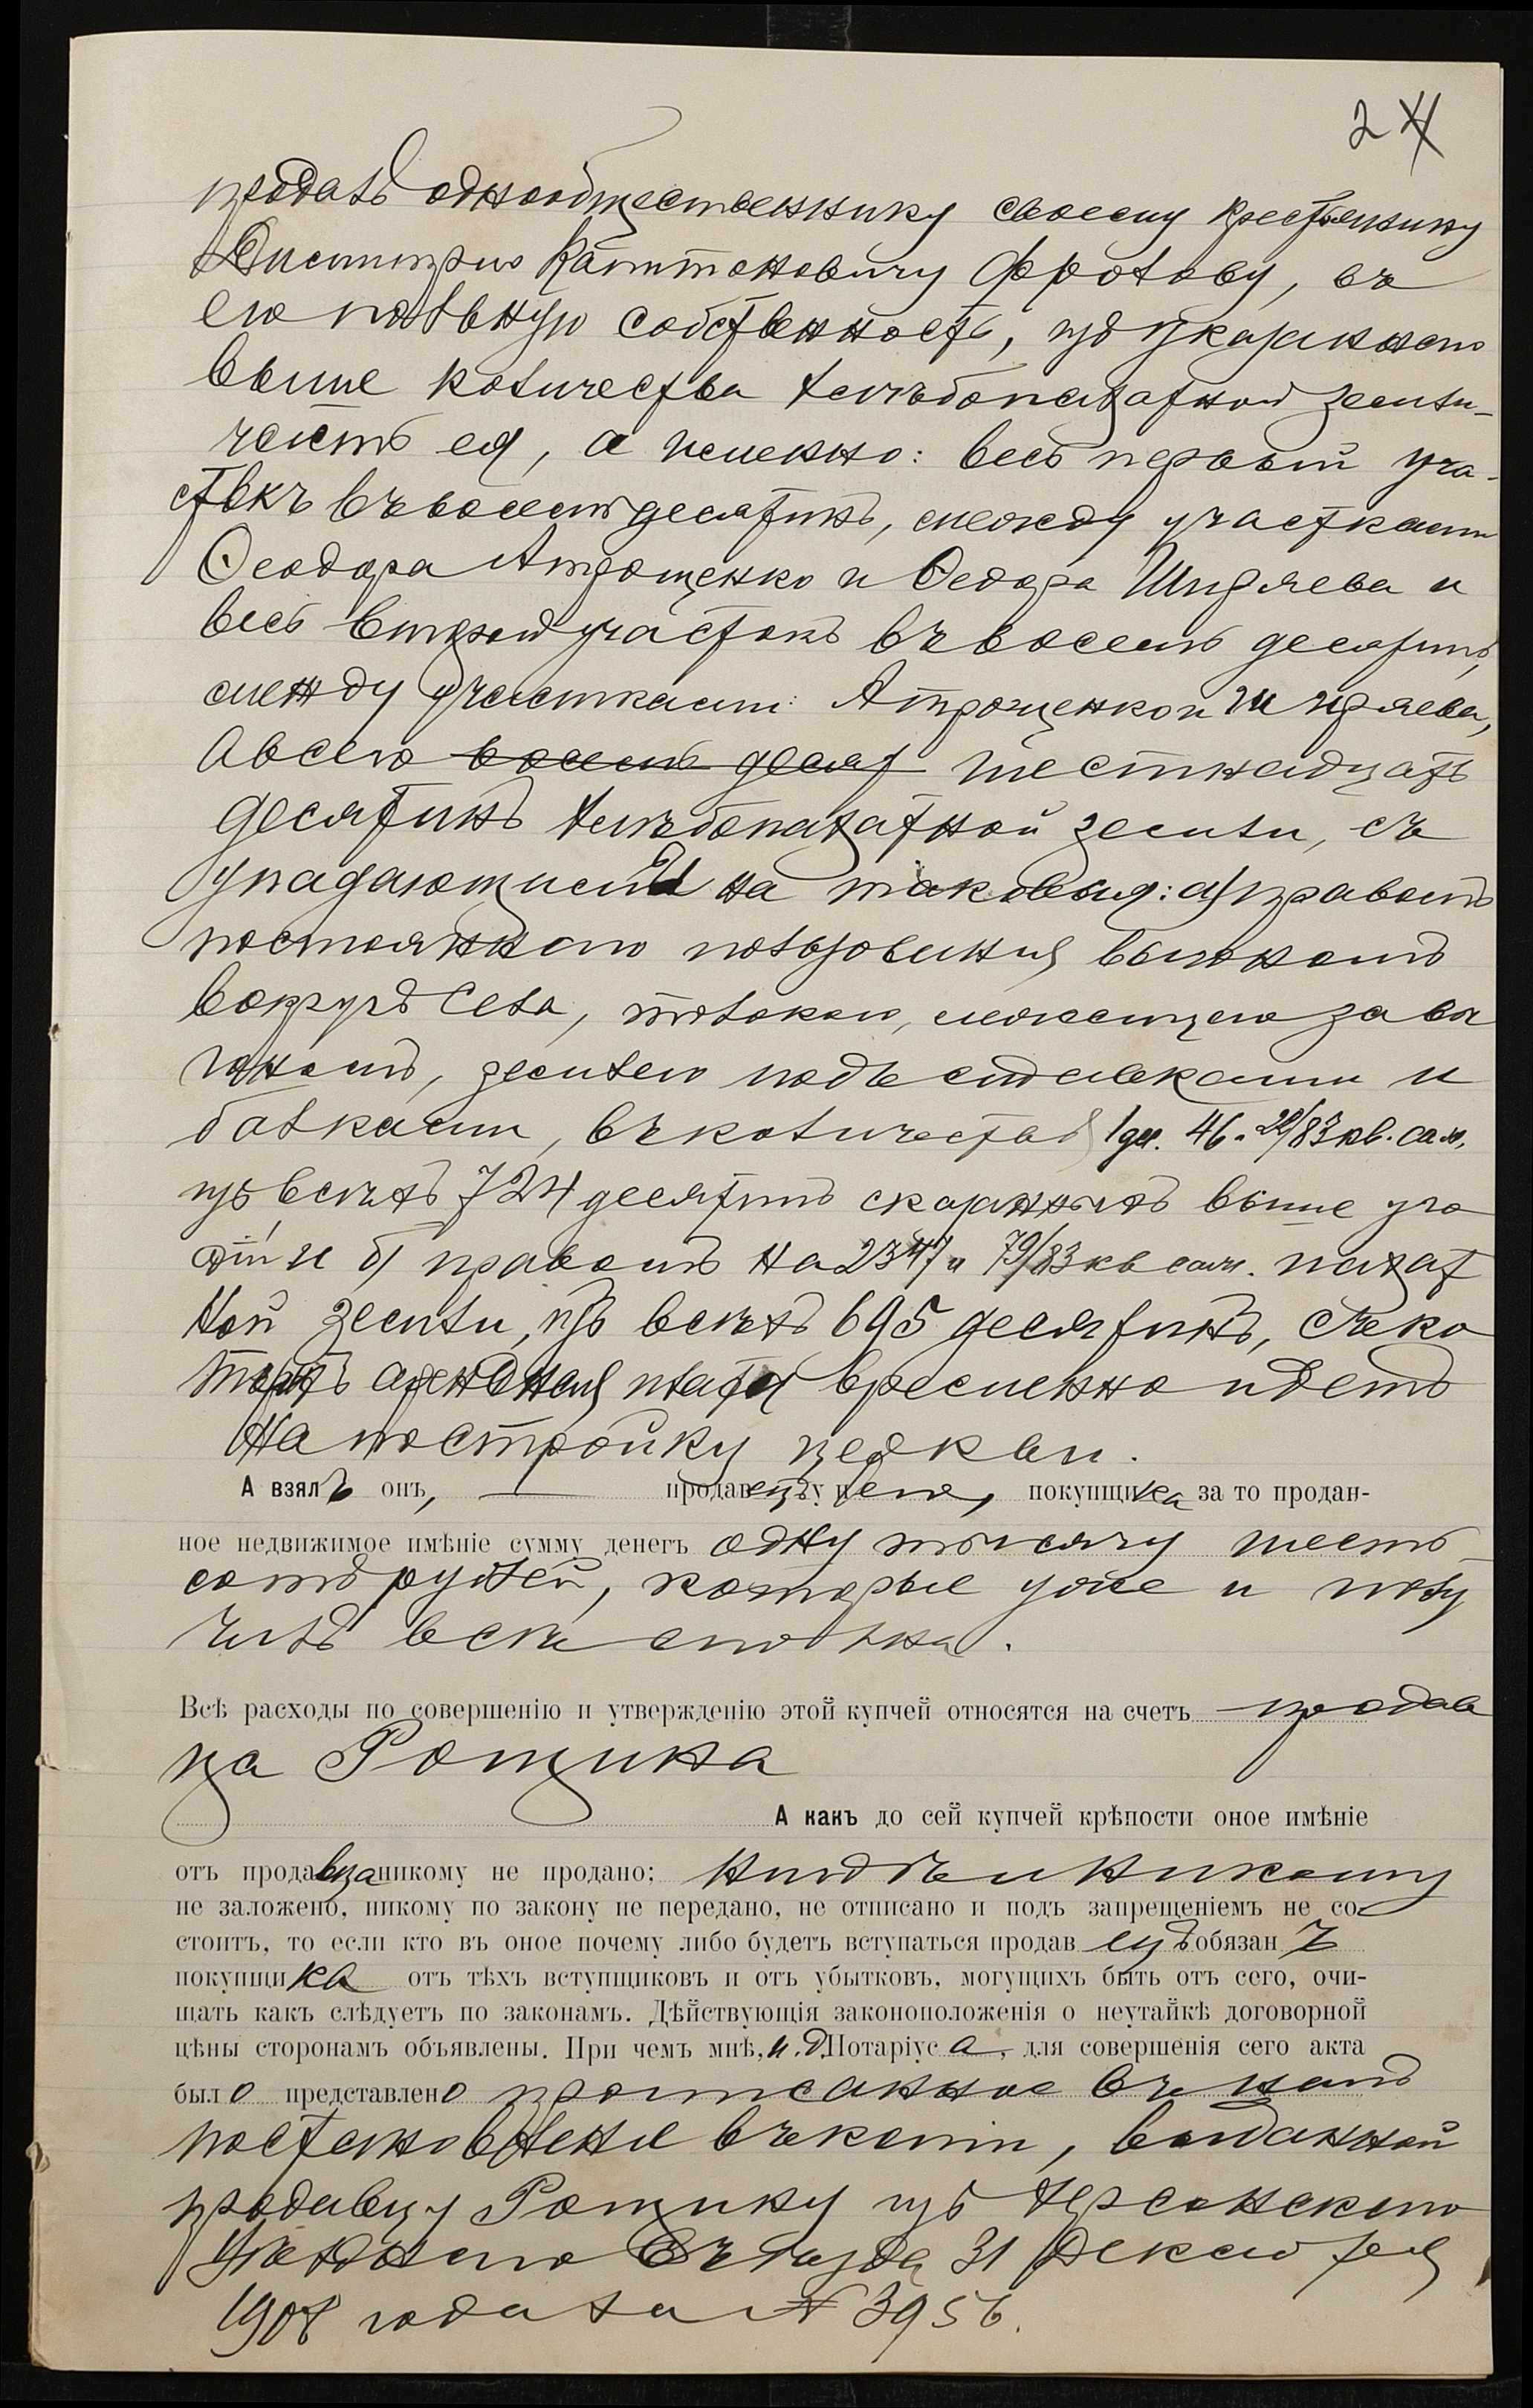 2 4
продать однообщественнику своему крестьянину
Дмитрию Капитоновичу Фролову, въ
его полную собственность, изъ указаннаго
выше количества хлѣбопахатной земли-
часть ея, а именно: весь первый уча-
стокъ въ восемь десятинъ, между участками
Ѳеодора Атрощенко и Ѳедора Шидяева и
весь второй участокъ въ восемь десятинъ,
между участками: Атрощенко и Шидяева,
а всего восемь десят шестнадцать
десятинъ хлѣбопахатной земли, съ
упадающими на таковыя: а) правомъ
постояннаго пользованія выгономъ
вокругъ села, толокою, лежащею за вы
гономъ, землею подъ ставками и
балками, въ количествѣ 1 дес. 46 " 20/83 кв. саж.
изъ всѣхъ 724 десятинъ сказанныхъ выше уго
дій и б) правомъ на 2347 " 79/83 кв саж. пахат
ной земли, изъ всѣхъ 695 десятинъ, съ ко
торыхъ арендная плата временно идетъ
на постройку церкви.
А взялъ онъ, продавецъ у него, покупщика за то продан-
ное недвижимое имѣніе сумму денегъ одну тысячу шесть
сотъ рублей, которые уже и полу
чилъ всѣ сполна.
Всѣ расходы по совершенію и утвержденію этой купчей относятся на счетъ продав
ца Рощина
А какъ до сей купчей крѣпости оное имѣніе
отъ продавца никому не продано; нигдѣ и никому
не заложено, никому по закону не передано, не отписано и подъ запрещеніемъ не со-
стоитъ, то если кто въ оное почему либо будетъ вступаться продавецъ обязанъ
покупщика отъ тѣхъ вступщиковъ и отъ убытковъ, могущихъ быть отъ сего, очи-
щать какъ слѣдуетъ по законамъ. Дѣйствующія законоположенія о неутайкѣ договорной
цѣны сторонамъ объявлены. При чемъ мнѣ, и. д. Нотаріуса, для совершенія сего акта
было представлено прописанное въ немъ
постановленіе въ копіи, выданной
продавцу Рощину изъ Херсонскаго
Уѣзднаго Съѣзда 31 Декабря
1908 года за № 3956.